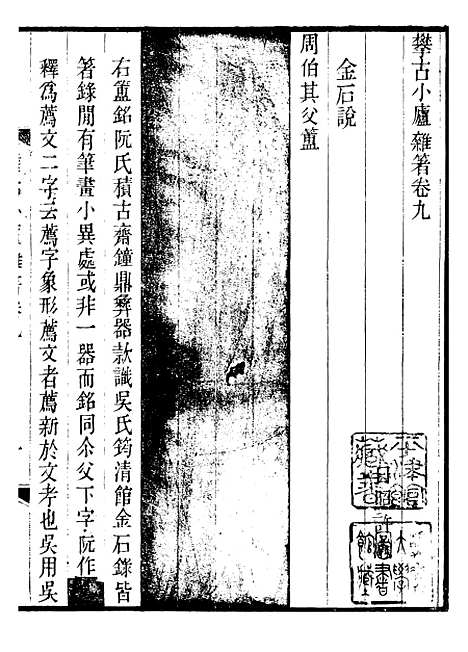 攀古小廬雜著卷九
金石說
周伯其父簠
右簠銘阮氏積古齋鐘鼎彝器款識吳氏筠清館金石錄皆
箸錄閒有筆畫小異處或非一器而銘同尒父下字阮作
釋爲薦文二字云薦字象形薦文者薦新於文考也吳用吳